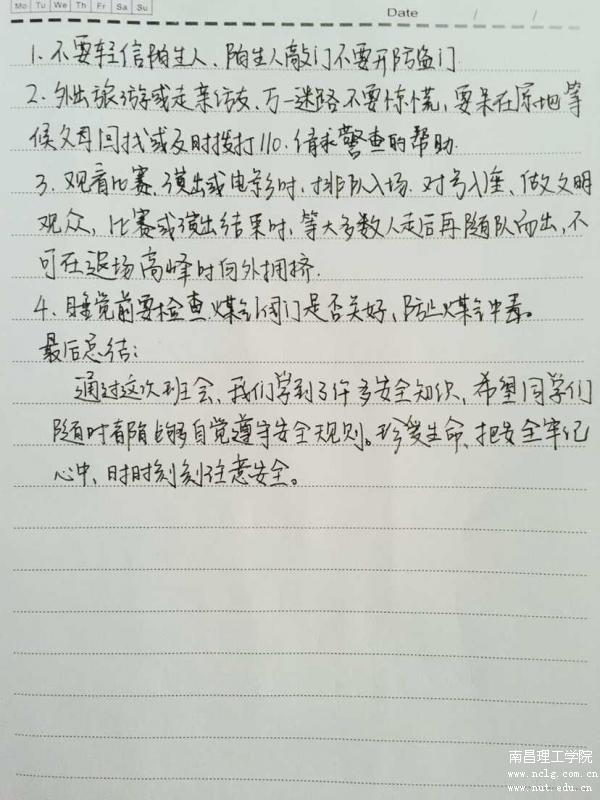 Mo Tu We Th Fr Sa Su
Date / /
1. 不要轻信陌生人、陌生人敲门不要开防盗门
2. 外出旅游或走亲访友、万一迷路不要惊慌，要呆在原地等
候父母回找或及时拨打110.请求警查的帮助.
3. 观看比赛、演出或电影时、排队入场.对号入座、做文明
观众，比赛或演出结束时，等大多数人走后再随队而出，不
可在退场高峰时向外拥挤.
4. 睡觉前要检查煤气阀门是否关好，防止煤气中毒。
最后总结：
通过这次班会、我们学到了许多安全知识，希望同学们
随时都能够自觉遵守安全规则。珍爱生命、把安全牢记
心中、时时刻刻注意安全。
南昌理工学院
www.nclg.com.cn
www.nut.edu.cn